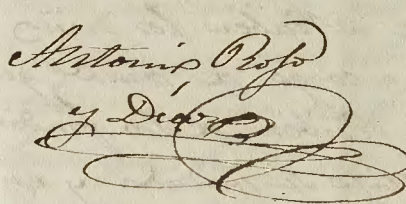 Antonio Roso
y Díaz